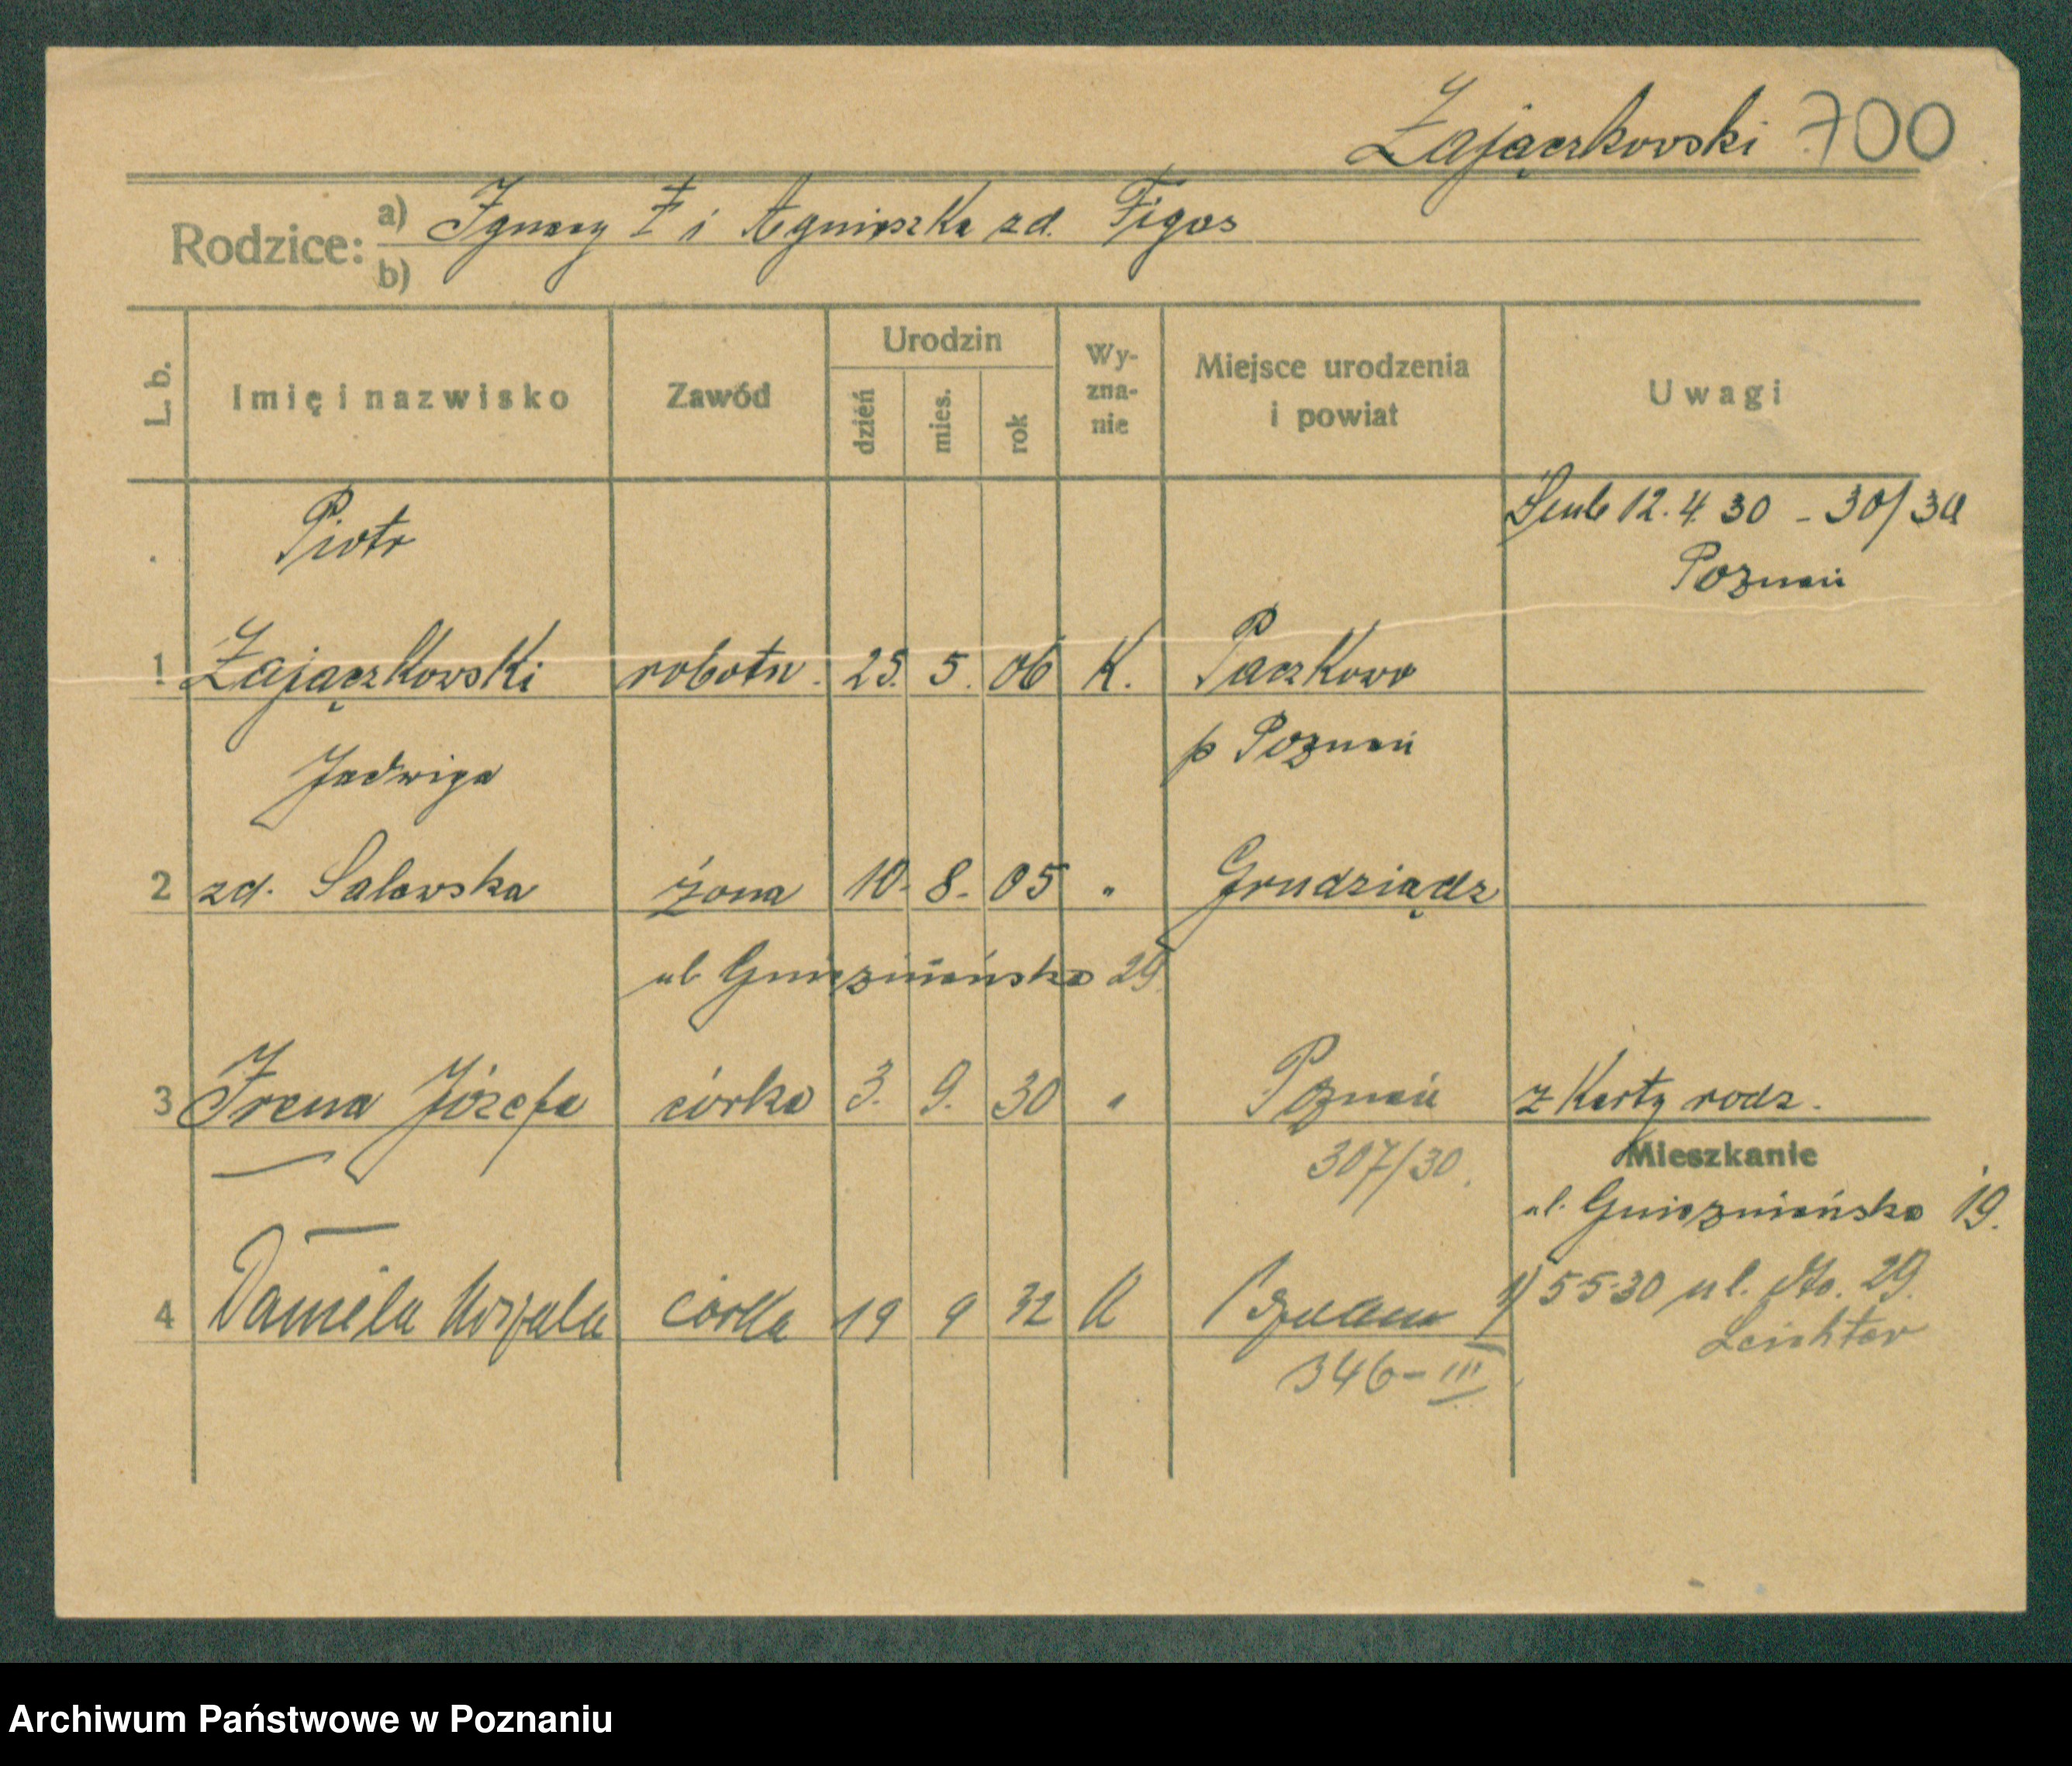 Zajączkowski 700
Rodzice: a) Ignacy Z i Agnieszka zd. Figas
b)
L. b. Imię i nazwisko Zawód Urodzin dzień mies. rok Wy-zna-nie Miejsce urodzenia i powiat Uwagi
Piotr Ślub 12.4.30 - 30/30
Poznań
1 Zajączkowski robotn. 25. 5. 06 K. Paczkowo
p Poznań
Jadwiga
2 zd. Salewska żona 10. 8. 05 " Grudziądz
ul. Gnieźnieńska 29.
3 Irena Józefa córka 3. 9. 30 " Poznań z Karty rodz.
307/30.
Mieszkanie
ul. Gnieźnieńska 19.
4 Daniela Urszula córka 19 9 32 K Poznań 1) 5 5 30 ul. dto. 29.
Leichter
346-III
Archiwum Państwowe w Poznaniu